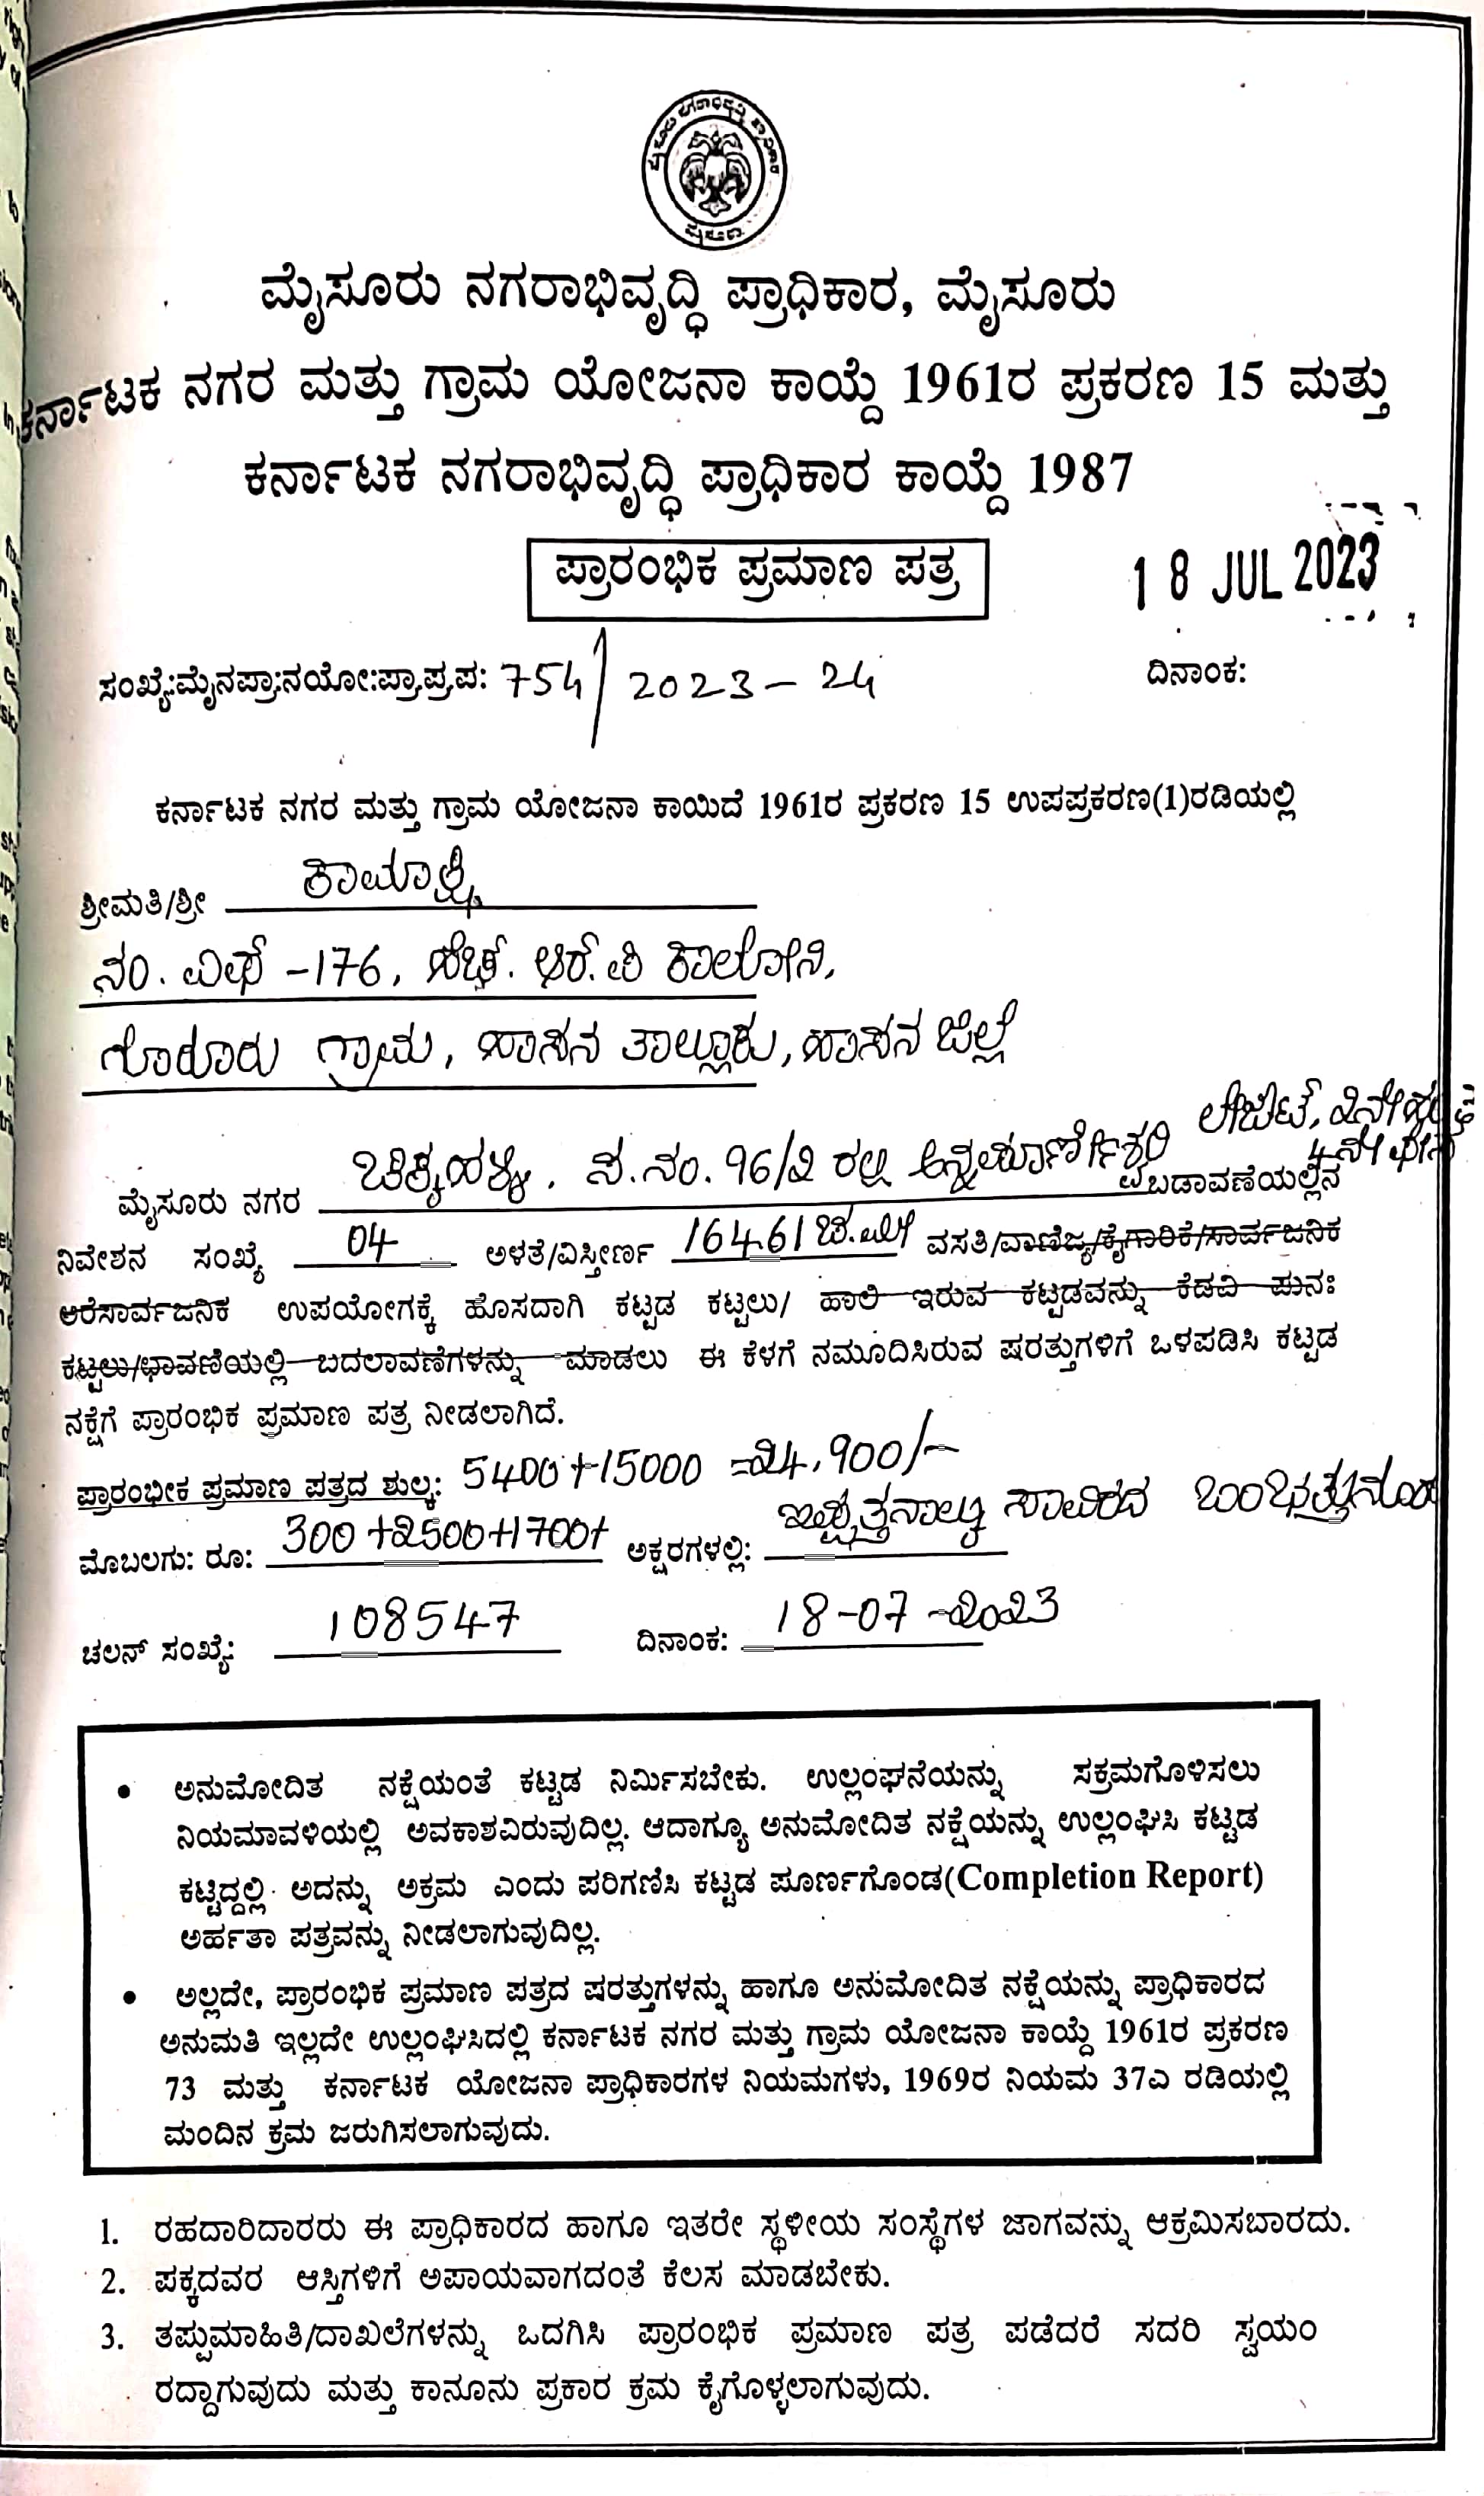 ಮೈಸೂರು ನಗರಾಭಿವೃದ್ಧಿ ಪ್ರಾಧಿಕಾರ, ಮೈಸೂರು
ಕರ್ನಾಟಕ ನಗರ ಮತ್ತು ಗ್ರಾಮ ಯೋಜನಾ ಕಾಯ್ದೆ 1961ರ ಪ್ರಕರಣ 15 ಮತ್ತು
ಕರ್ನಾಟಕ ನಗರಾಭಿವೃದ್ಧಿ ಪ್ರಾಧಿಕಾರ ಕಾಯ್ದೆ 1987
ಪ್ರಾರಂಭಿಕ ಪ್ರಮಾಣ ಪತ್ರ
18 JUL 2023
ಸಂಖ್ಯೆ:ಮೈನಪ್ರಾ:ನಯೋ:ಪ್ರಾ.ಪ್ರ.ಪ: 754/2023-24 ದಿನಾಂಕ:
ಕರ್ನಾಟಕ ನಗರ ಮತ್ತು ಗ್ರಾಮ ಯೋಜನಾ ಕಾಯಿದೆ 1961ರ ಪ್ರಕರಣ 15 ಉಪಪ್ರಕರಣ(1)ರಡಿಯಲ್ಲಿ
ಶ್ರೀಮತಿ/ಶ್ರೀ ಕಾಮಾಕ್ಷಿ
ನಂ. ಎಫ್ -176, ಹೆಚ್. ಆರ್. ಪಿ ಕಾಲೋನಿ,
ಗೊರೂರು ಗ್ರಾಮ, ಹಾಸನ ತಾಲ್ಲೂಕು, ಹಾಸನ ಜಿಲ್ಲೆ
ಮೈಸೂರು ನಗರ ಸ.ನಂ. 96/2 ರಲ್ಲಿ ಅನ್ನಪೂರ್ಣೇಶ್ವರಿ ಬಡಾವಣೆಯಲ್ಲಿನ
ನಿವೇಶನ ಸಂಖ್ಯೆ 04 ಅಳತೆ/ವಿಸ್ತೀರ್ಣ 164.61 ಚ.ಮೀ ವಸತಿ/ವಾಣಿಜ್ಯ/ಕೈಗಾರಿಕೆ/ಸಾರ್ವಜನಿಕ
ಅರೆಸಾರ್ವಜನಿಕ ಉಪಯೋಗಕ್ಕೆ ಹೊಸದಾಗಿ ಕಟ್ಟಡ ಕಟ್ಟಲು/ ಹಾಲಿ ಇರುವ ಕಟ್ಟಡವನ್ನು ಕೆಡವಿ ಪುನಃ
ಕಟ್ಟಲು/ಛಾವಣಿಯಲ್ಲಿ ಬದಲಾವಣೆಗಳನ್ನು ಮಾಡಲು ಈ ಕೆಳಗೆ ನಮೂದಿಸಿರುವ ಷರತ್ತುಗಳಿಗೆ ಒಳಪಡಿಸಿ ಕಟ್ಟಡ
ನಕ್ಷೆಗೆ ಪ್ರಾರಂಭಿಕ ಪ್ರಮಾಣ ಪತ್ರ ನೀಡಲಾಗಿದೆ.
ಪ್ರಾರಂಭೀಕ ಪ್ರಮಾಣ ಪತ್ರದ ಶುಲ್ಕ: 5400+15000 =24,900/-
ಮೊಬಲಗು: ರೂ: 300+2500+1700+ ಅಕ್ಷರಗಳಲ್ಲಿ: ಇಪ್ಪತ್ತನಾಲ್ಕು ಸಾವಿರದ ಒಂಬತ್ತುನೂರು
ಚಲನ್ ಸಂಖ್ಯೆ: 108547 ದಿನಾಂಕ: 18-07-2023
• ಅನುಮೋದಿತ ನಕ್ಷೆಯಂತೆ ಕಟ್ಟಡ ನಿರ್ಮಿಸಬೇಕು. ಉಲ್ಲಂಘನೆಯನ್ನು ಸಕ್ರಮಗೊಳಿಸಲು
ನಿಯಮಾವಳಿಯಲ್ಲಿ ಅವಕಾಶವಿರುವುದಿಲ್ಲ. ಆದಾಗ್ಯೂ ಅನುಮೋದಿತ ನಕ್ಷೆಯನ್ನು ಉಲ್ಲಂಘಿಸಿ ಕಟ್ಟಡ
ಕಟ್ಟಿದ್ದಲ್ಲಿ ಅದನ್ನು ಅಕ್ರಮ ಎಂದು ಪರಿಗಣಿಸಿ ಕಟ್ಟಡ ಪೂರ್ಣಗೊಂಡ(Completion Report)
ಅರ್ಹತಾ ಪತ್ರವನ್ನು ನೀಡಲಾಗುವುದಿಲ್ಲ.
• ಅಲ್ಲದೇ, ಪ್ರಾರಂಭಿಕ ಪ್ರಮಾಣ ಪತ್ರದ ಷರತ್ತುಗಳನ್ನು ಹಾಗೂ ಅನುಮೋದಿತ ನಕ್ಷೆಯನ್ನು ಪ್ರಾಧಿಕಾರದ
ಅನುಮತಿ ಇಲ್ಲದೇ ಉಲ್ಲಂಘಿಸಿದಲ್ಲಿ ಕರ್ನಾಟಕ ನಗರ ಮತ್ತು ಗ್ರಾಮ ಯೋಜನಾ ಕಾಯ್ದೆ 1961ರ ಪ್ರಕರಣ
73 ಮತ್ತು ಕರ್ನಾಟಕ ಯೋಜನಾ ಪ್ರಾಧಿಕಾರಗಳ ನಿಯಮಗಳು, 1969ರ ನಿಯಮ 37ಎ ರಡಿಯಲ್ಲಿ
ಮಂದಿನ ಕ್ರಮ ಜರುಗಿಸಲಾಗುವುದು.
1. ರಹದಾರಿದಾರರು ಈ ಪ್ರಾಧಿಕಾರದ ಹಾಗೂ ಇತರೇ ಸ್ಥಳೀಯ ಸಂಸ್ಥೆಗಳ ಜಾಗವನ್ನು ಆಕ್ರಮಿಸಬಾರದು.
2. ಪಕ್ಕದವರ ಆಸ್ತಿಗಳಿಗೆ ಅಪಾಯವಾಗದಂತೆ ಕೆಲಸ ಮಾಡಬೇಕು.
3. ತಪ್ಪುಮಾಹಿತಿ/ದಾಖಲೆಗಳನ್ನು ಒದಗಿಸಿ ಪ್ರಾರಂಭಿಕ ಪ್ರಮಾಣ ಪತ್ರ ಪಡೆದರೆ ಸದರಿ ಸ್ವಯಂ
ರದ್ದಾಗುವುದು ಮತ್ತು ಕಾನೂನು ಪ್ರಕಾರ ಕ್ರಮ ಕೈಗೊಳ್ಳಲಾಗುವುದು.